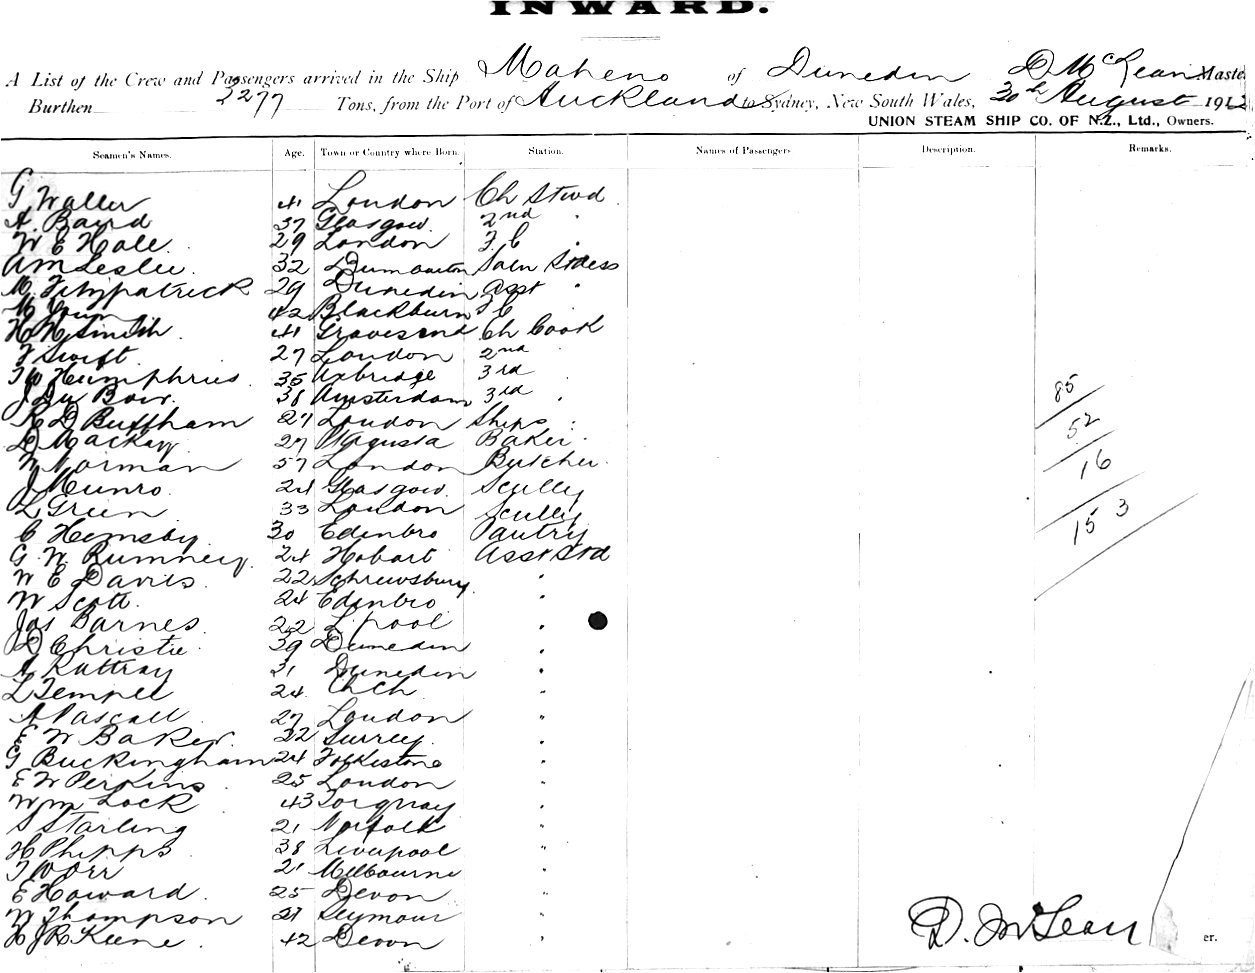 INWARD.
A List of the Crew and Passengers arrived in the Ship Maheno of Dunedin D McLean Maste
Burthen 3277 Tons, from the Port of Auckland to Sydney, New South Wales, 30th August 1912
UNION STEAM SHIP CO. OF N.Z., Ltd., Owners.
Seamen's Names. Age. Town or Country where Born. Station. Names of Passengers Description. Remarks.
G Waller 41 London Ch Stwd
A. Baird 37 Glasgow. 2nd "
W E Hale. 29 London F C "
A M Leslie. 32 Dumbarton Saln Stdess
M. Fitzpatrick 29 Dunedin Asst "
M 42 Blackburn F C
H H Smith 41 Gravesend Ch Cook
F Swift. 27 London 2nd "
T W Humphries. 35 Uxbridge 3rd "
J Du Bois. 38 Amsterdam 3rd "
R D Buffham 27 London Ships "
D Mackay 27 Augusta Baker.
W Norman 57 London Butcher.
J Munro. 24 Glasgow. Scully
L Green 33 London Scully
C Hemsby. 30 Edinbro Pantry
G. W. Rumney. 24 Hobart Asst Std
W E Davis. 22 Schrewsbury. "
W Scott. 24 Edinbro "
Jas Barnes. 22 L'pool "
D Christie. 39 Dunedin "
A Rattray 31 Dunedin "
L Temple 24 ChCh "
A Pascall 27 London "
E W Baker. 32 Surrey. "
G Buckingham 24 Folkestone "
E W Perkins 25 London "
Wm Lock 43 Torquay "
S Starling 21 Norfolk "
H Phipps 38 Liverpool "
T W Orr 21 Melbourne "
E Howard. 25 Devon "
W Thompson 27 Seymour "
H J R Keene. 42 Devon "
85
52
16
153
D. McLean
er.